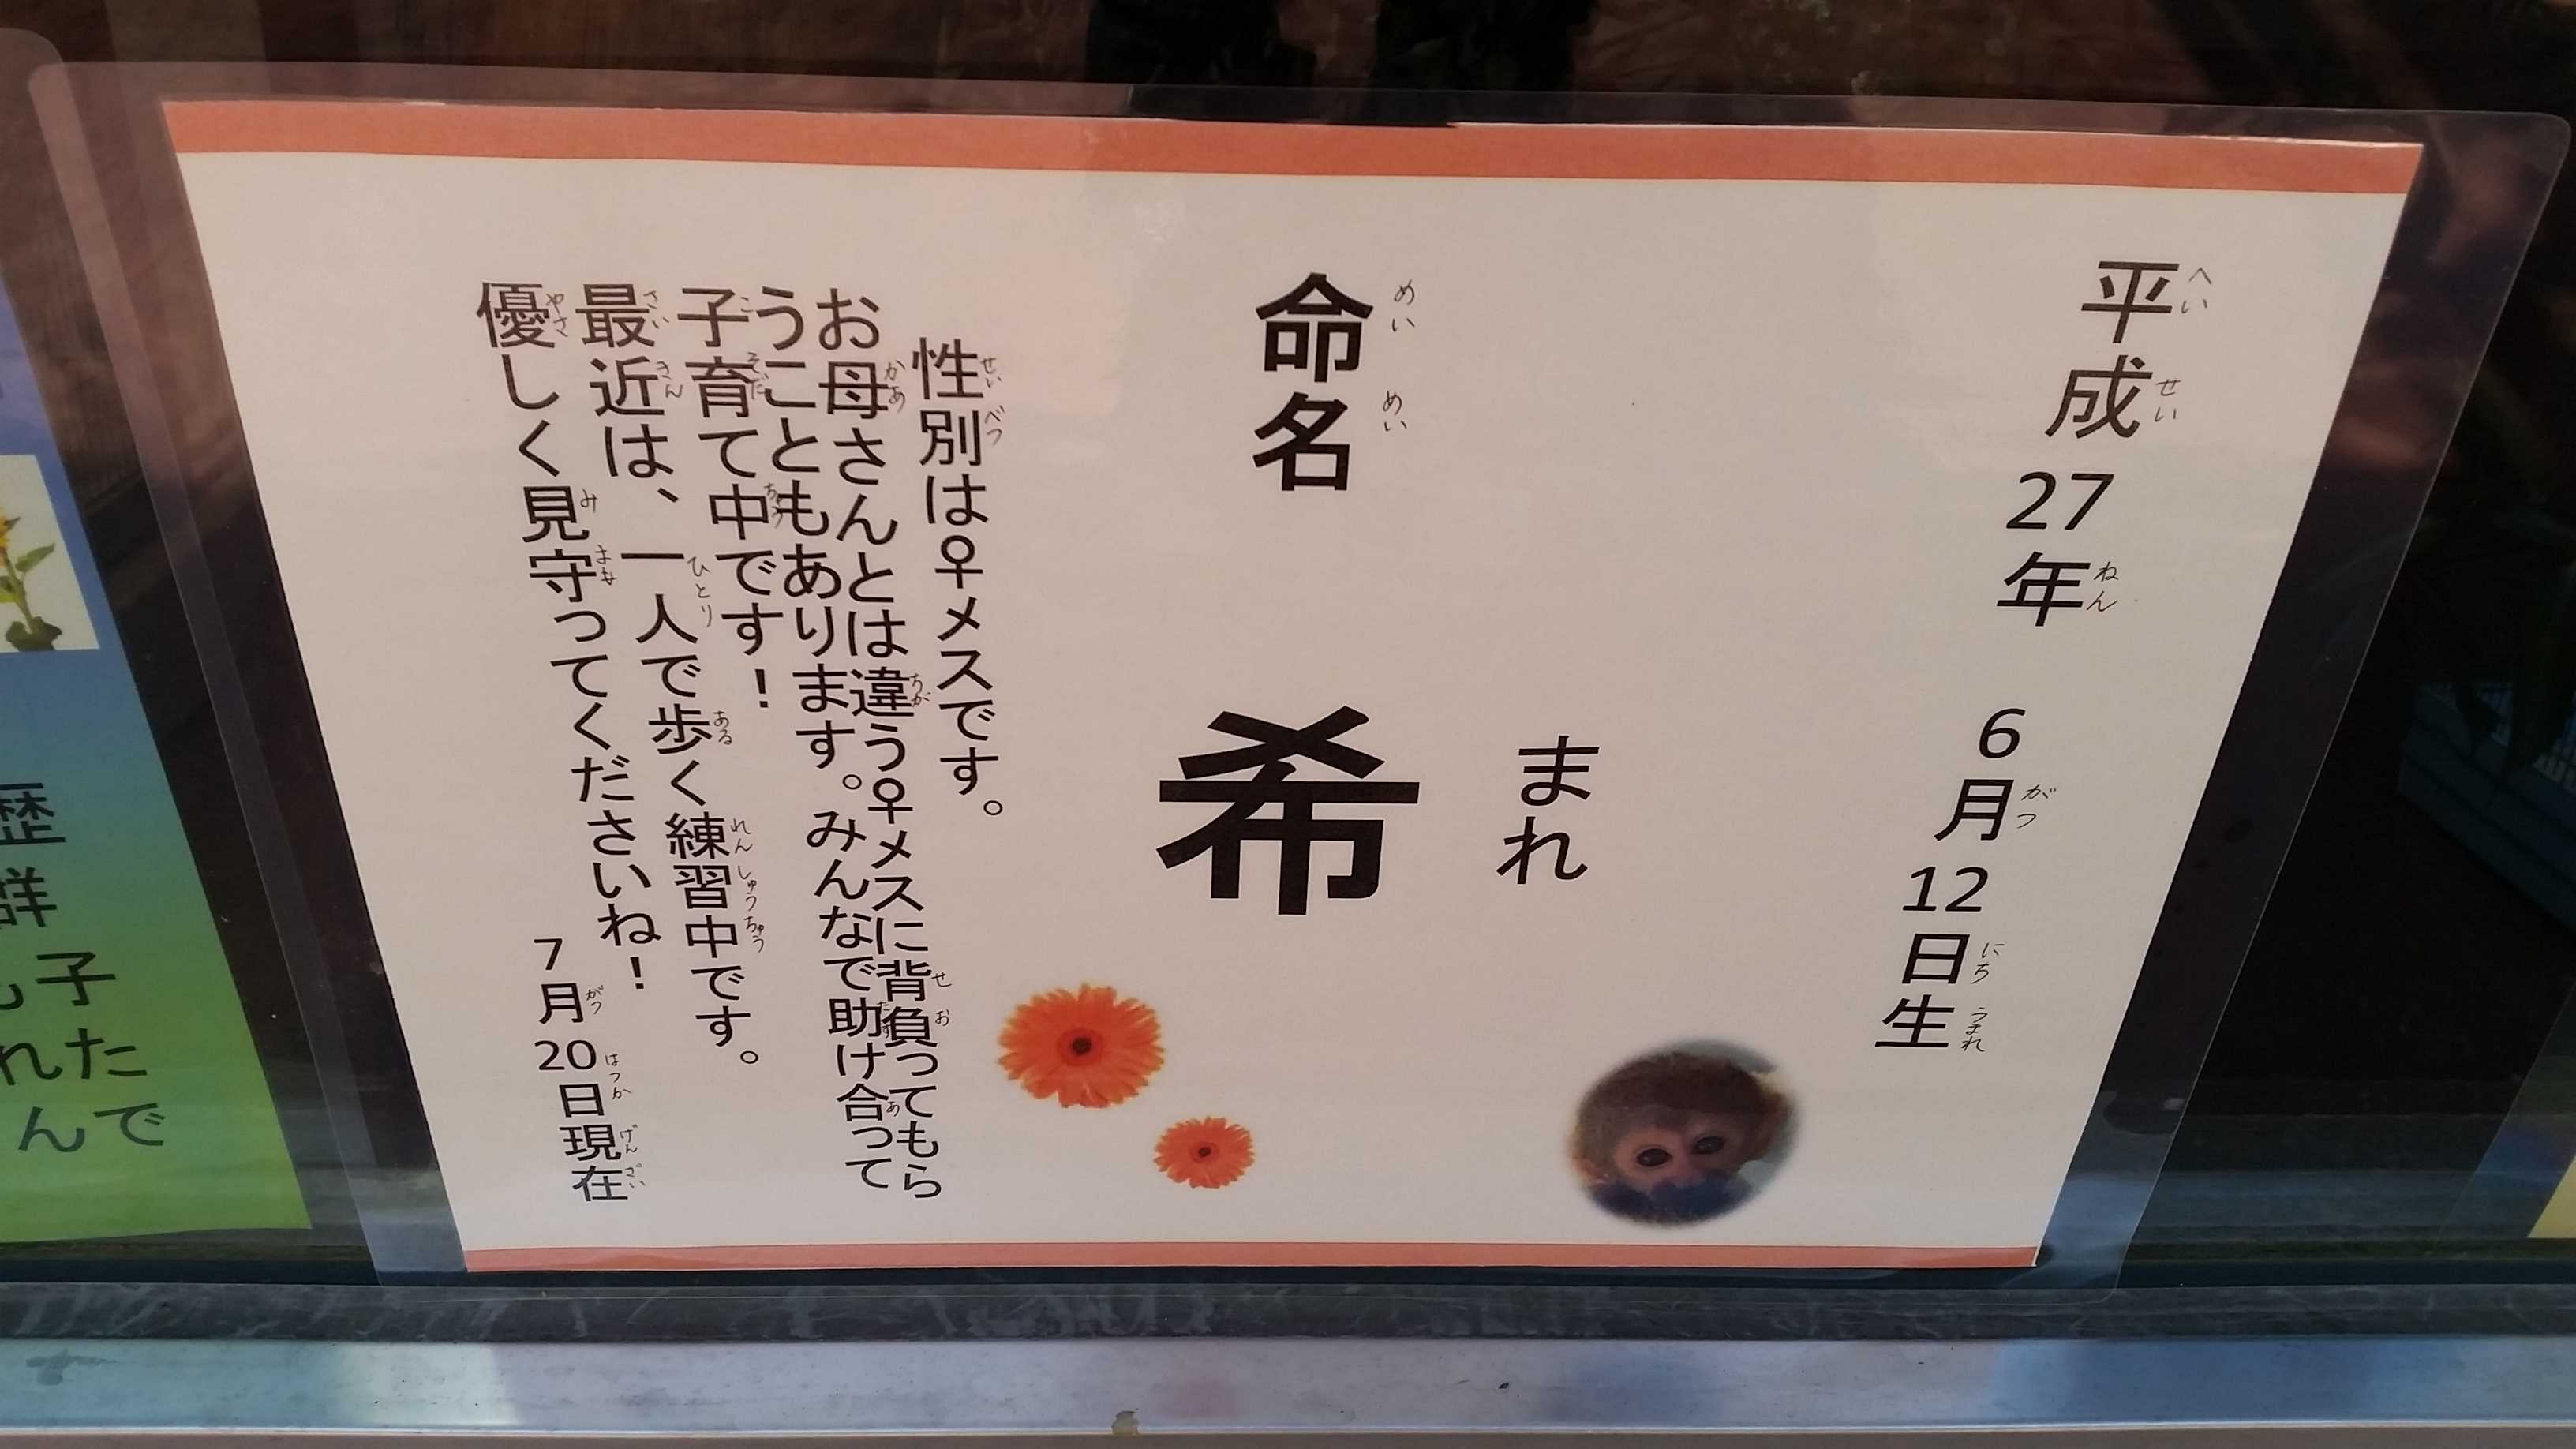 平成27年 6月12日生
まれ
命名 希
性別は♀メスです。
お母さんとは違う♀メスに背負ってもら
うこともあります。みんなで助け合って
子育て中です！
最近は、一人で歩く練習中です。
優しく見守ってくださいね！
7月20日現在
歴
群
子
れた
んで